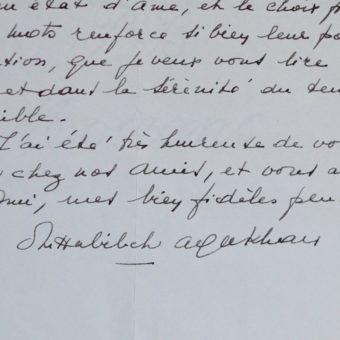 un état d'âme, et le choix
mots renforce si bien leur
tion, que je veux vous lire
et dans la sérénité du
ible.
J'ai été très heureuse de
chez nos amis, et vous
mes bien fidèles
aga khan